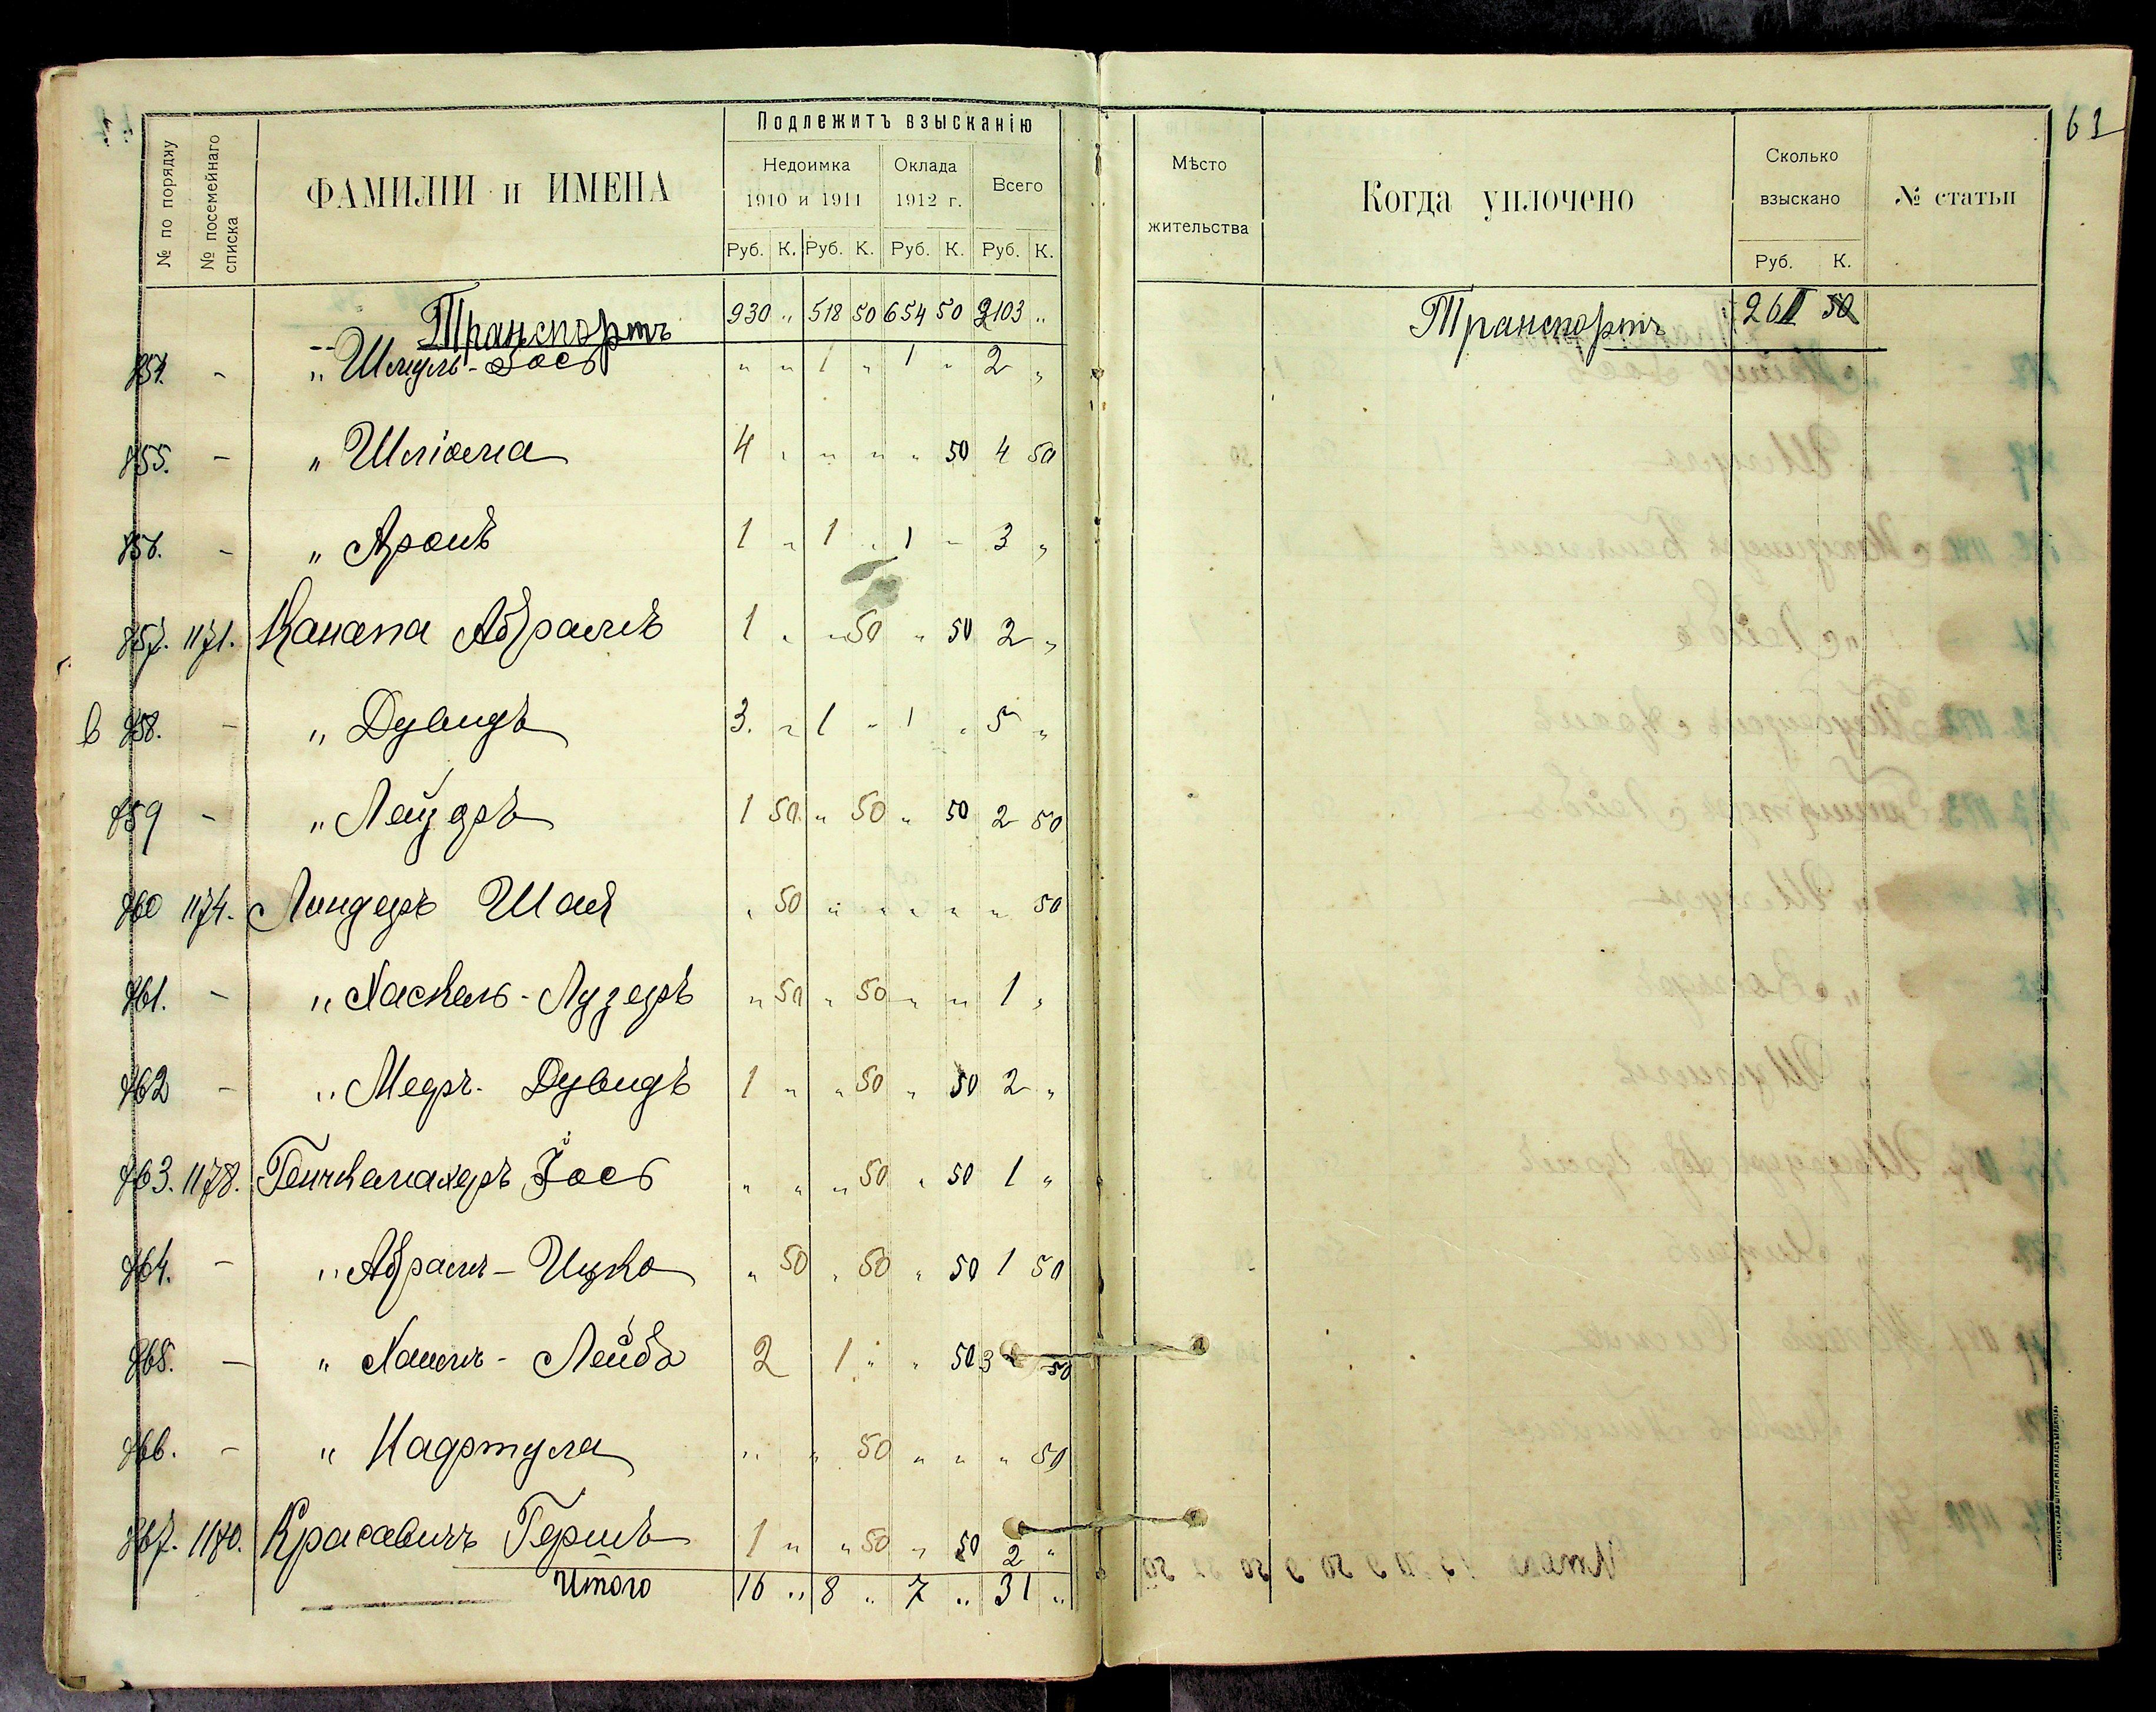 61
№ по порядку
№ посемейнаго списка
ФАМИЛІИ и ИМЕНА
Подлежитъ взысканію
Недоимка 1910 и 1911
Оклада 1912 г.
Всего
Руб. К. Руб. К. Руб. К. Руб. К.
Транспортъ 930 " 518 50 654 50 2103 "
854. - " Шмуль-Іось " " 1 " 1 " 2 "
855. - " Шліома 4 " " " " 50 4 50
856. - " Аронъ 1 " 1 " 1 " 3 "
857. 1171. Канапа Абрамъ 1 " " 50 " 50 2 "
в 858. - " Дувидъ 3. " 1 " 1 " 5 "
859 - " Лейзоръ 1 50 " 50 " 50 2 50
860 1174. Линдеръ Шая " 50 " " " " " 50
861. - " Хаскель-Лузеръ " 50 " 50 " " 1 "
862 - " Меер. Дувидъ 1 " " 50 " 50 2 "
863. 1178. Іось " " " 50 " 50 1 "
864. - " Абрамъ-Ицко " 50 " 50 " 50 1 50
865. - " Хаимъ-Лейба 2 1 " " 50 3 50
866. - " " " 50 " " " 50
867. 1180. Красавичъ Гершъ 1 " " 50 " 50 2 "
Итого 16 " 8 " 7 " 31 "
Мѣсто жительства
Когда уплочено
Сколько взыскано
Руб. К.
№ статьи
Транспортъ